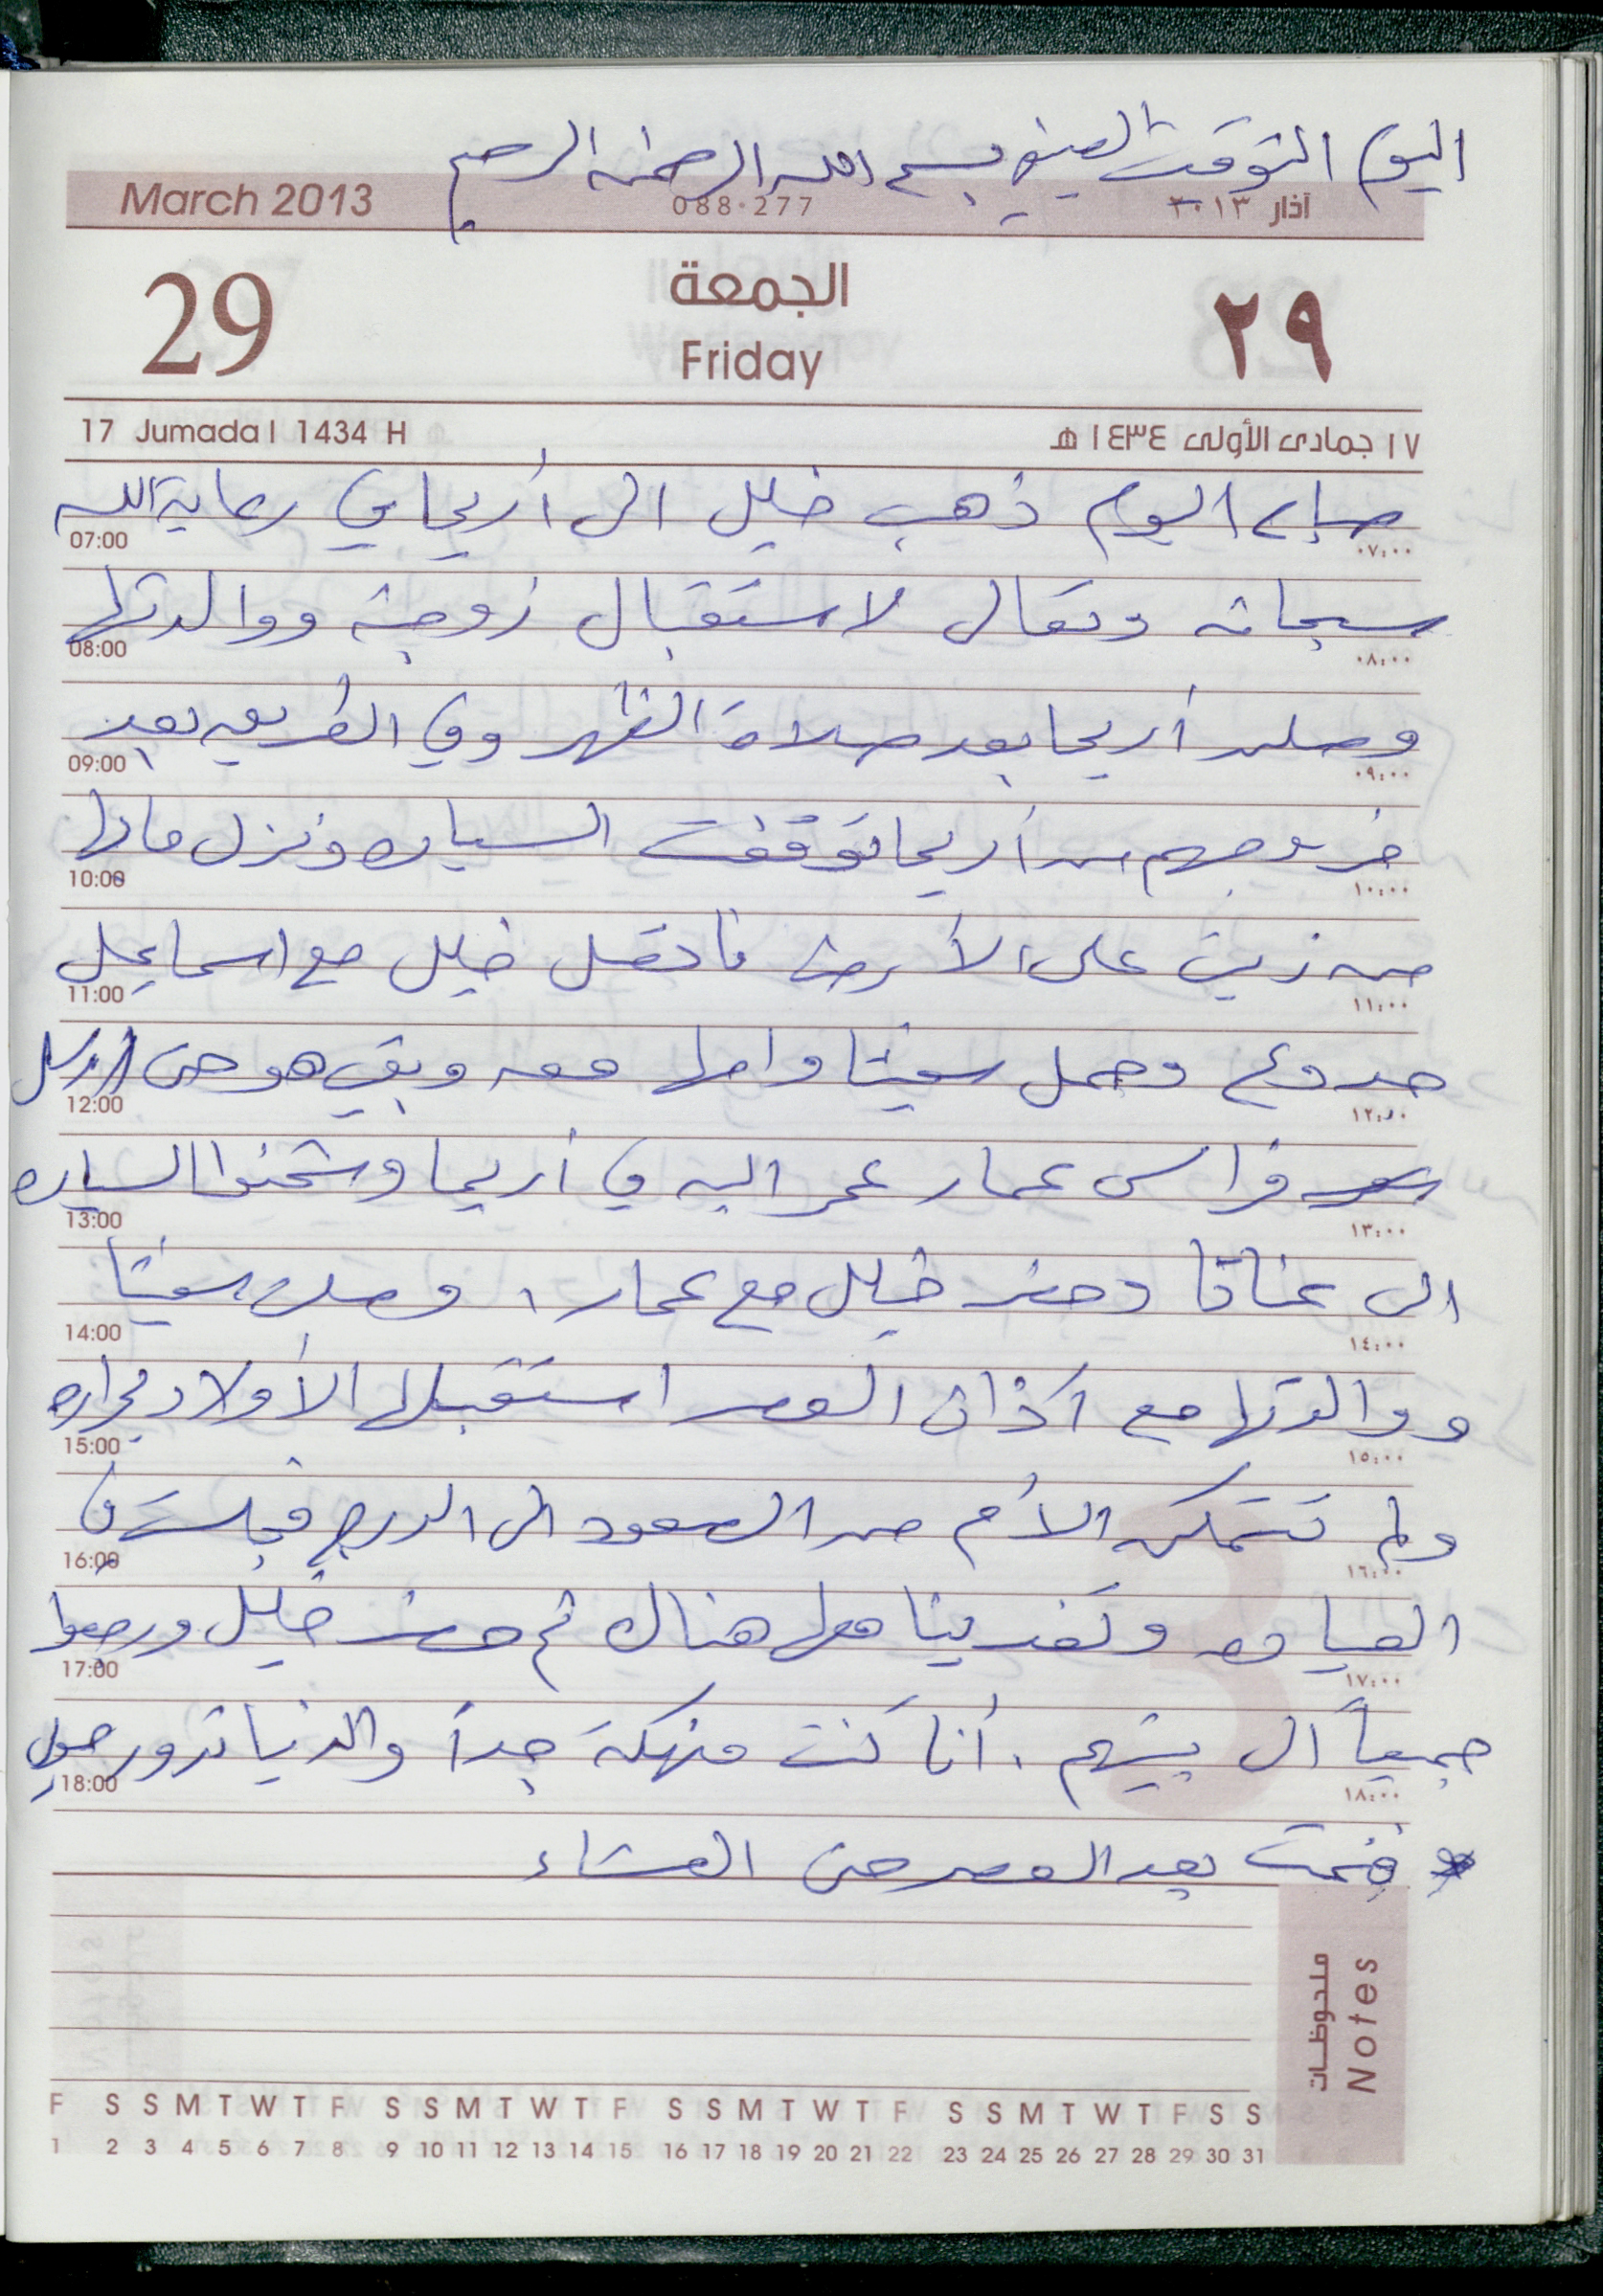 اليوم التوقيت الصيفي بسم الله الرحمن الرحيم
March 2013 088-277 آذار ٢٠١٣
29 الجمعة ٢٩
Friday
17 Jumada I 1434 H ١٧ جمادى الأولى ١٤٣٤ هـ
صباح اليوم ذهب خليل الى أريحا في رعاية الله
07:00 ٠٧:٠٠
سبحانه وتعالى لاستقبال زوجته ووالدتها
08:00 ٠٨:٠٠
وصلت أريحا بعد صلاة الظهر وفي الطريق بعد
09:00 ٠٩:٠٠
خروجهم من أريحا توقفت السياره ونزل مابها
10:00 ١٠:٠٠
من زيت على الأرض فاتصل خليل مع اسماعيل
11:00 ١١:٠٠
وحمل وامها معه وبقي هو حتى ارسل
12:00 ١٢:٠٠
فراس عمار عمر اليه في أريحا وشحنوا السياره
13:00 ١٣:٠٠
الى عناتا وحضر خليل مع عمار، وصلت
14:00 ١٤:٠٠
ووالدتها مع آذان العصر استقبلها الأولاد بحراره
15:00 ١٥:٠٠
ولم تتمكن الأم من الصعود الى الدرج فجلست في
16:00 ١٦:٠٠
العياده وتغدينا معها هناك ثم حضر خليل ورجعوا
17:00 ١٧:٠٠
جميعاً الى بيتهم. أنا كنت منهكة جداً والدنيا تدور حولي
18:00 ١٨:٠٠
فنمت بعد العصر حتى العشاء
ملحوظات
Notes
F S S M T W T F S S M T W T F S S M T W T F S S M T W T F S S
1 2 3 4 5 6 7 8 9 10 11 12 13 14 15 16 17 18 19 20 21 22 23 24 25 26 27 28 29 30 31